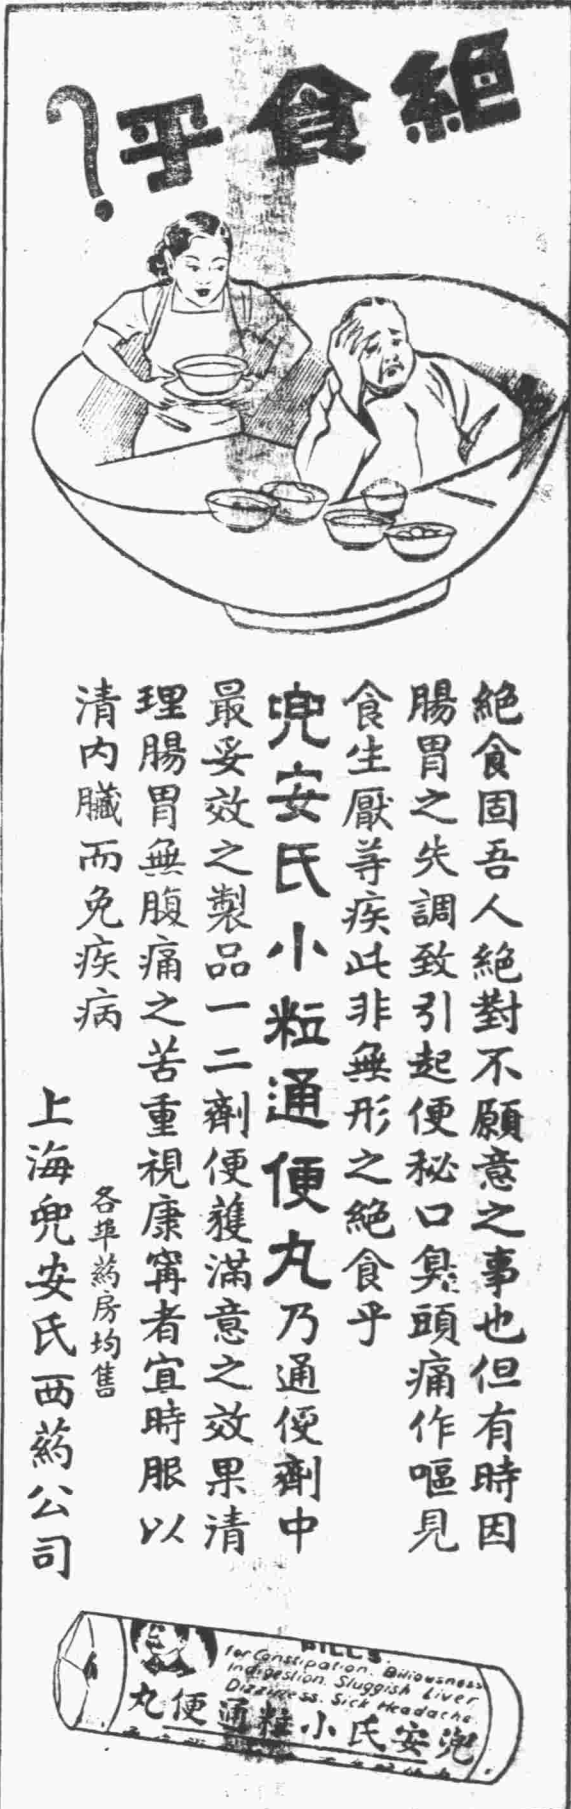 絕食乎?
絕食固吾人絕對不願意之事也但有時因
腸胃之失調致引起便秘口臭頭痛作嘔見
食生厭等疾此非無形之絕食乎
兜安氏小粒通便丸乃通便劑中
最妥效之製品一二劑便獲滿意之效果清
理腸胃無腹痛之苦重視康寧者宜時服以
清內臟而免疾病
各埠葯房均售
上海兜安氏西葯公司
PILLS
for Constipation. Biliousness
Indigestion. Sluggish Liver
Dizziness. Sick Headache.
兜安氏小粒通便丸